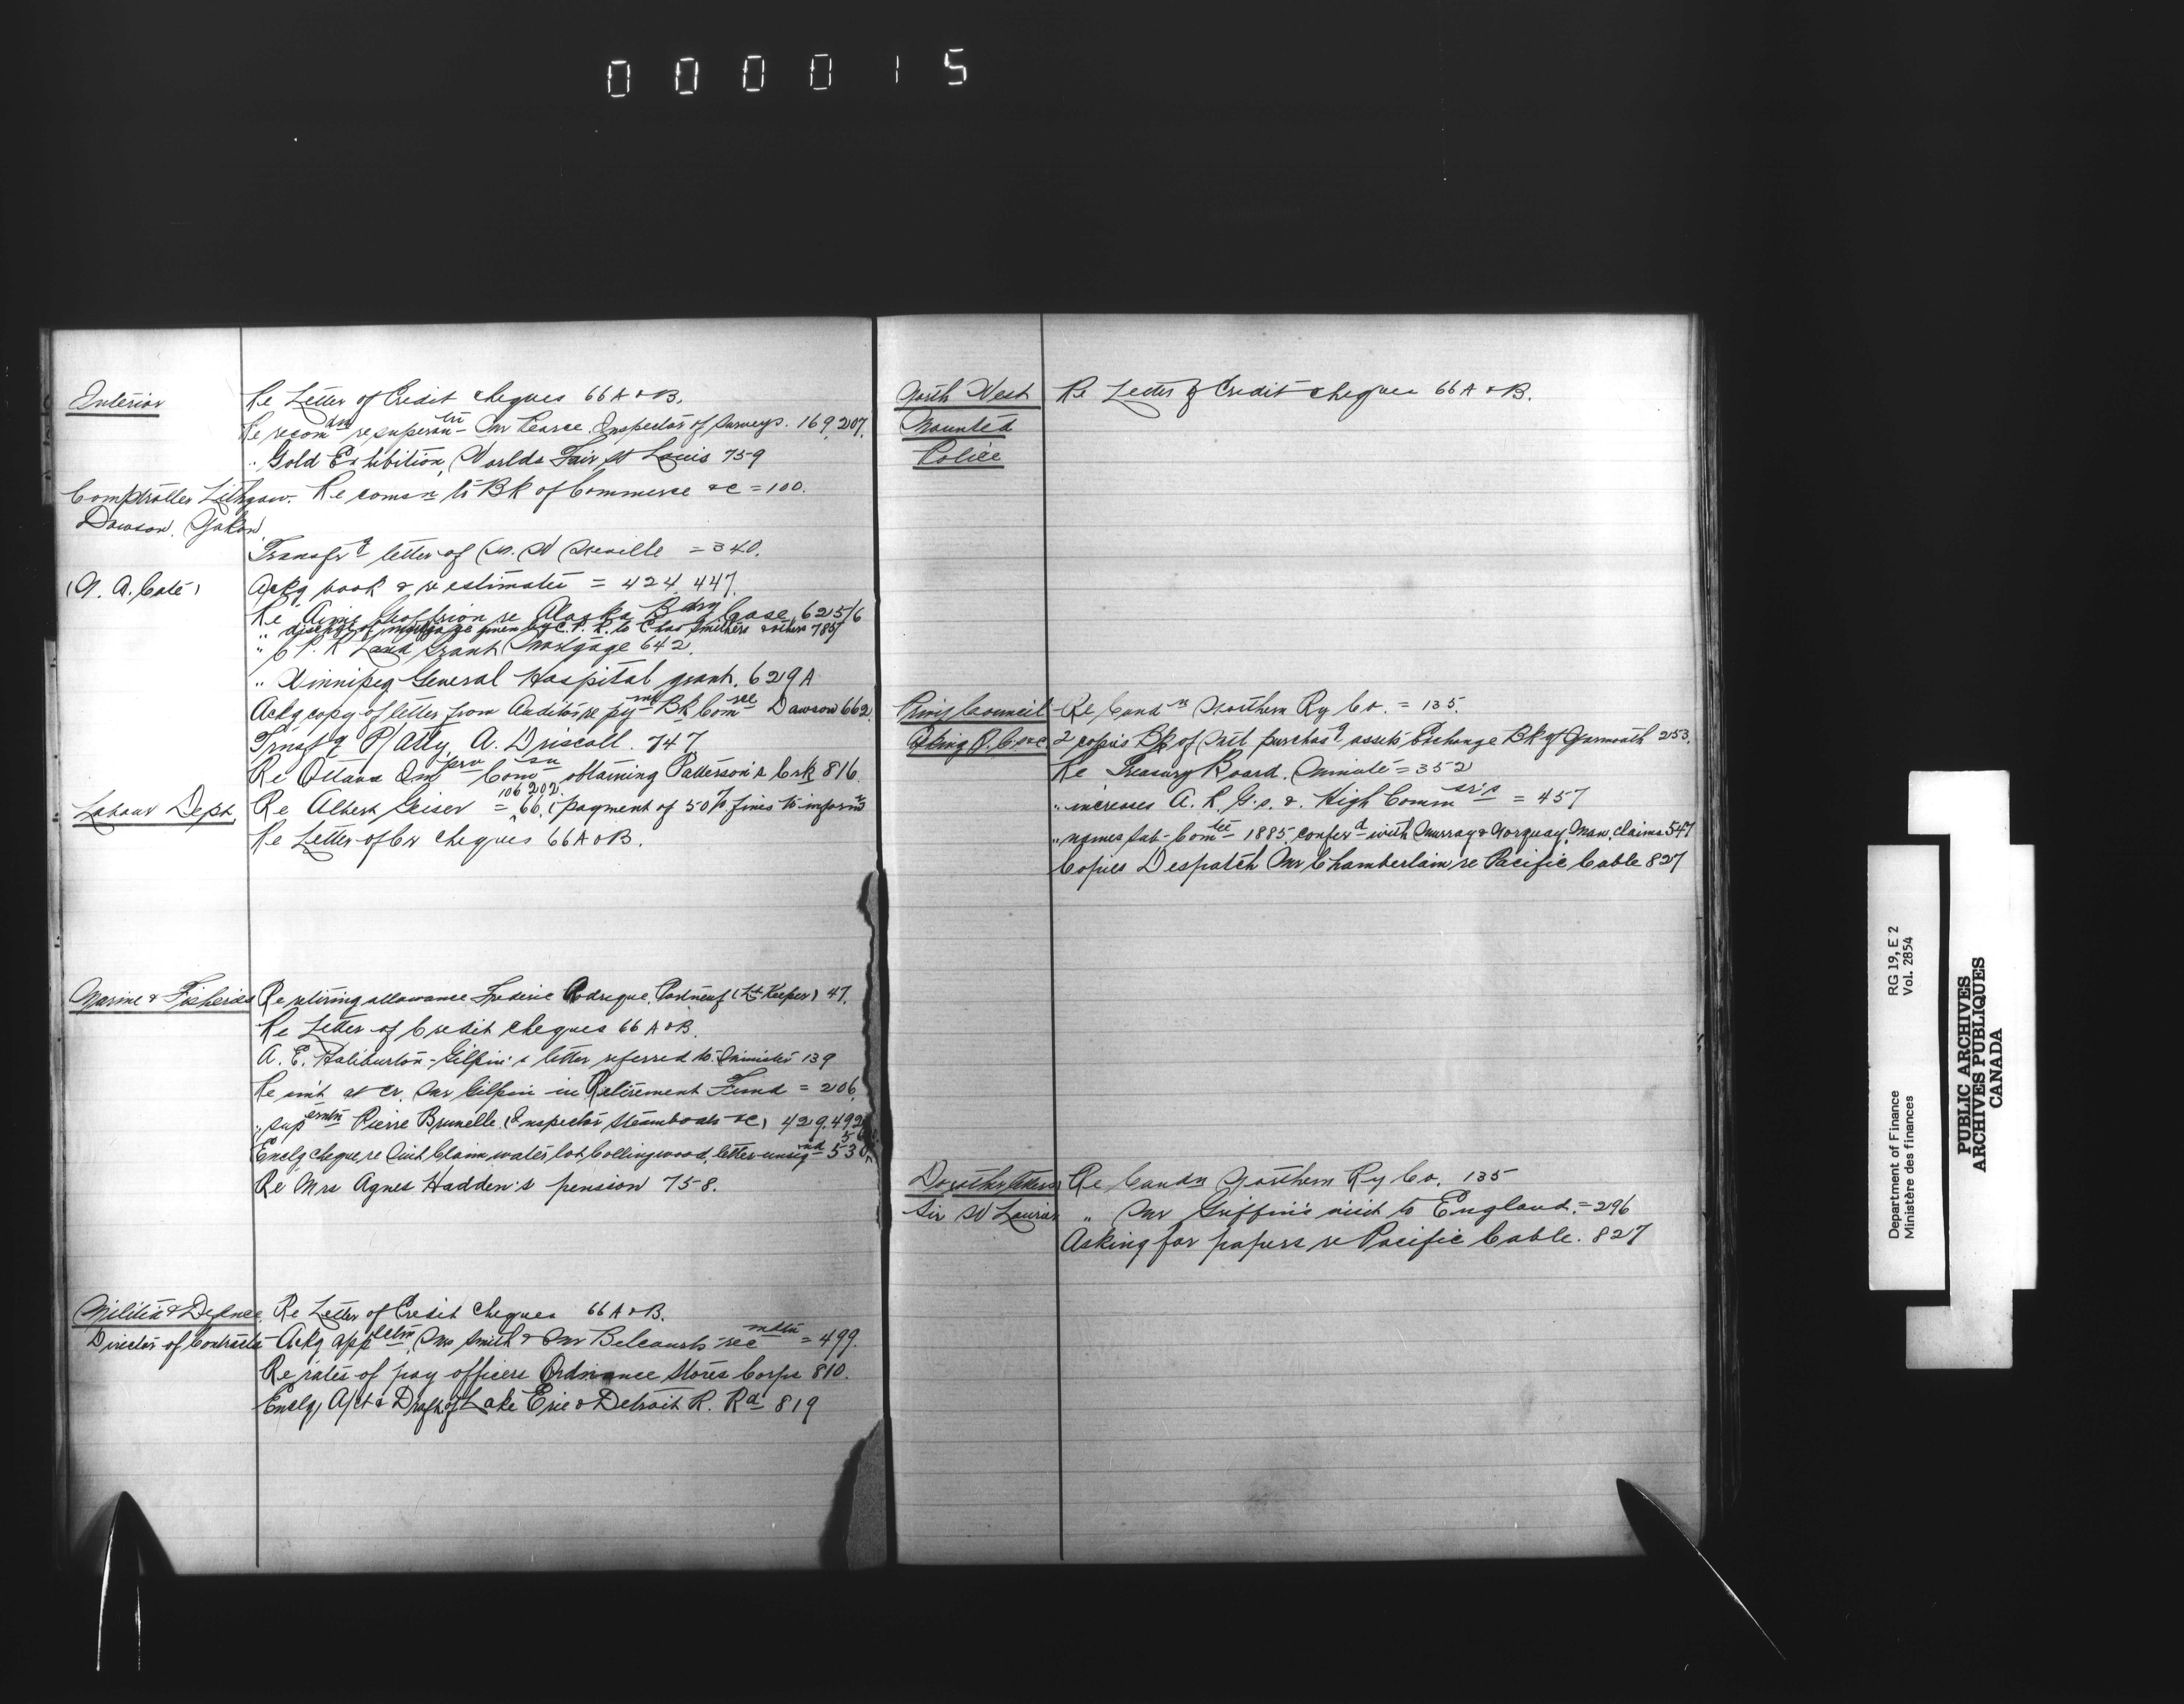 000015
Interior
Re Letter of Credit cheques 66 A & B.
Re recomdn re superantn Mr Pearce. Inspector of Surveys. 169, 207.
" Gold Exhibition, Worlds Fair St Louis 759
Comptroller Lithgow. Re comsn to Bk of Commerce &c = 100.
Dawson, Yukon.
Transfg letter of W = 340.
Ackg book & re estimates = 424, 447.
Re Aimé Geoffrion re Alaska Bdry Case, 625/6
" discharge of mortgage given by C. P. R. to Chas Smithers & others 785
" C P. R Land Grant Mortgage 642.
" Winnipeg General Hospital grant. 629 A
Ackg copy of letter from Auditor re pymt Bk Comrce Dawson 662.
Trnsfg P/Atty. A. Driscoll. 747
Re Ottawa Imprv Comsn obtaining Patterson's Crk 816.
106 202.
Labour Dept. Re Albert Geiser = 66, (payment of 50% fines to informr
Re Letter of Cr cheques 66 A & B.
Marine & Fisheries Re retiring allowance Frederic Rodrigue, Portneuf (Lt Keeper) 47.
Re Letter of Credit cheques 66 A & B.
A. E. Haliburton - Gilpin's letter referred to Minister 139
Re amt at cr. Mr Gilpin in Retirement Fund = 206,
" supermtn Pierre Brunelle (Inspector Steamboats &c) 429, 492
Enclg cheque re Quit Claim water lot Collingwood, letter unsignd 530
Re Mrs Agnes Hadden's pension 758.
Militia & Defence Re Letter of Credit cheques 66 A & B.
Director of Contracts - Ackg appletn, Mr Smith & Mr Belcourts recmdtn = 499.
Re rates of pay officers Ordnance Stores Corps 810.
Enclg A/ct & Draft of Lake Erie & Detroit R. Rd 819
North West Re Letter of Credit cheques 66 A & B.
Mounted
Police
Privy Council Re Candn Northern Ry Co. = 135.
2 copies Bk of Mtl purchasg assets Exchange Bk of Yarmouth 253.
Re Treasury Board. Minute = 352
" increases A. R. G.s. & High Commsrs = 457
" names Sub-Comtee 1885 conferd with Murray & Norquay, Man. claims 547
Copies Despatch Mr Chamberlain re Pacific Cable 827
Re Candn Northern Ry Co. 135
Sir W Laurier " Mr Griffin's visit to England. = 296
Asking for papers re Pacific Cable. 827
Department of Finance RG 19, E 2
Ministère des finances Vol. 2854
PUBLIC ARCHIVES
ARCHIVES PUBLIQUES
CANADA